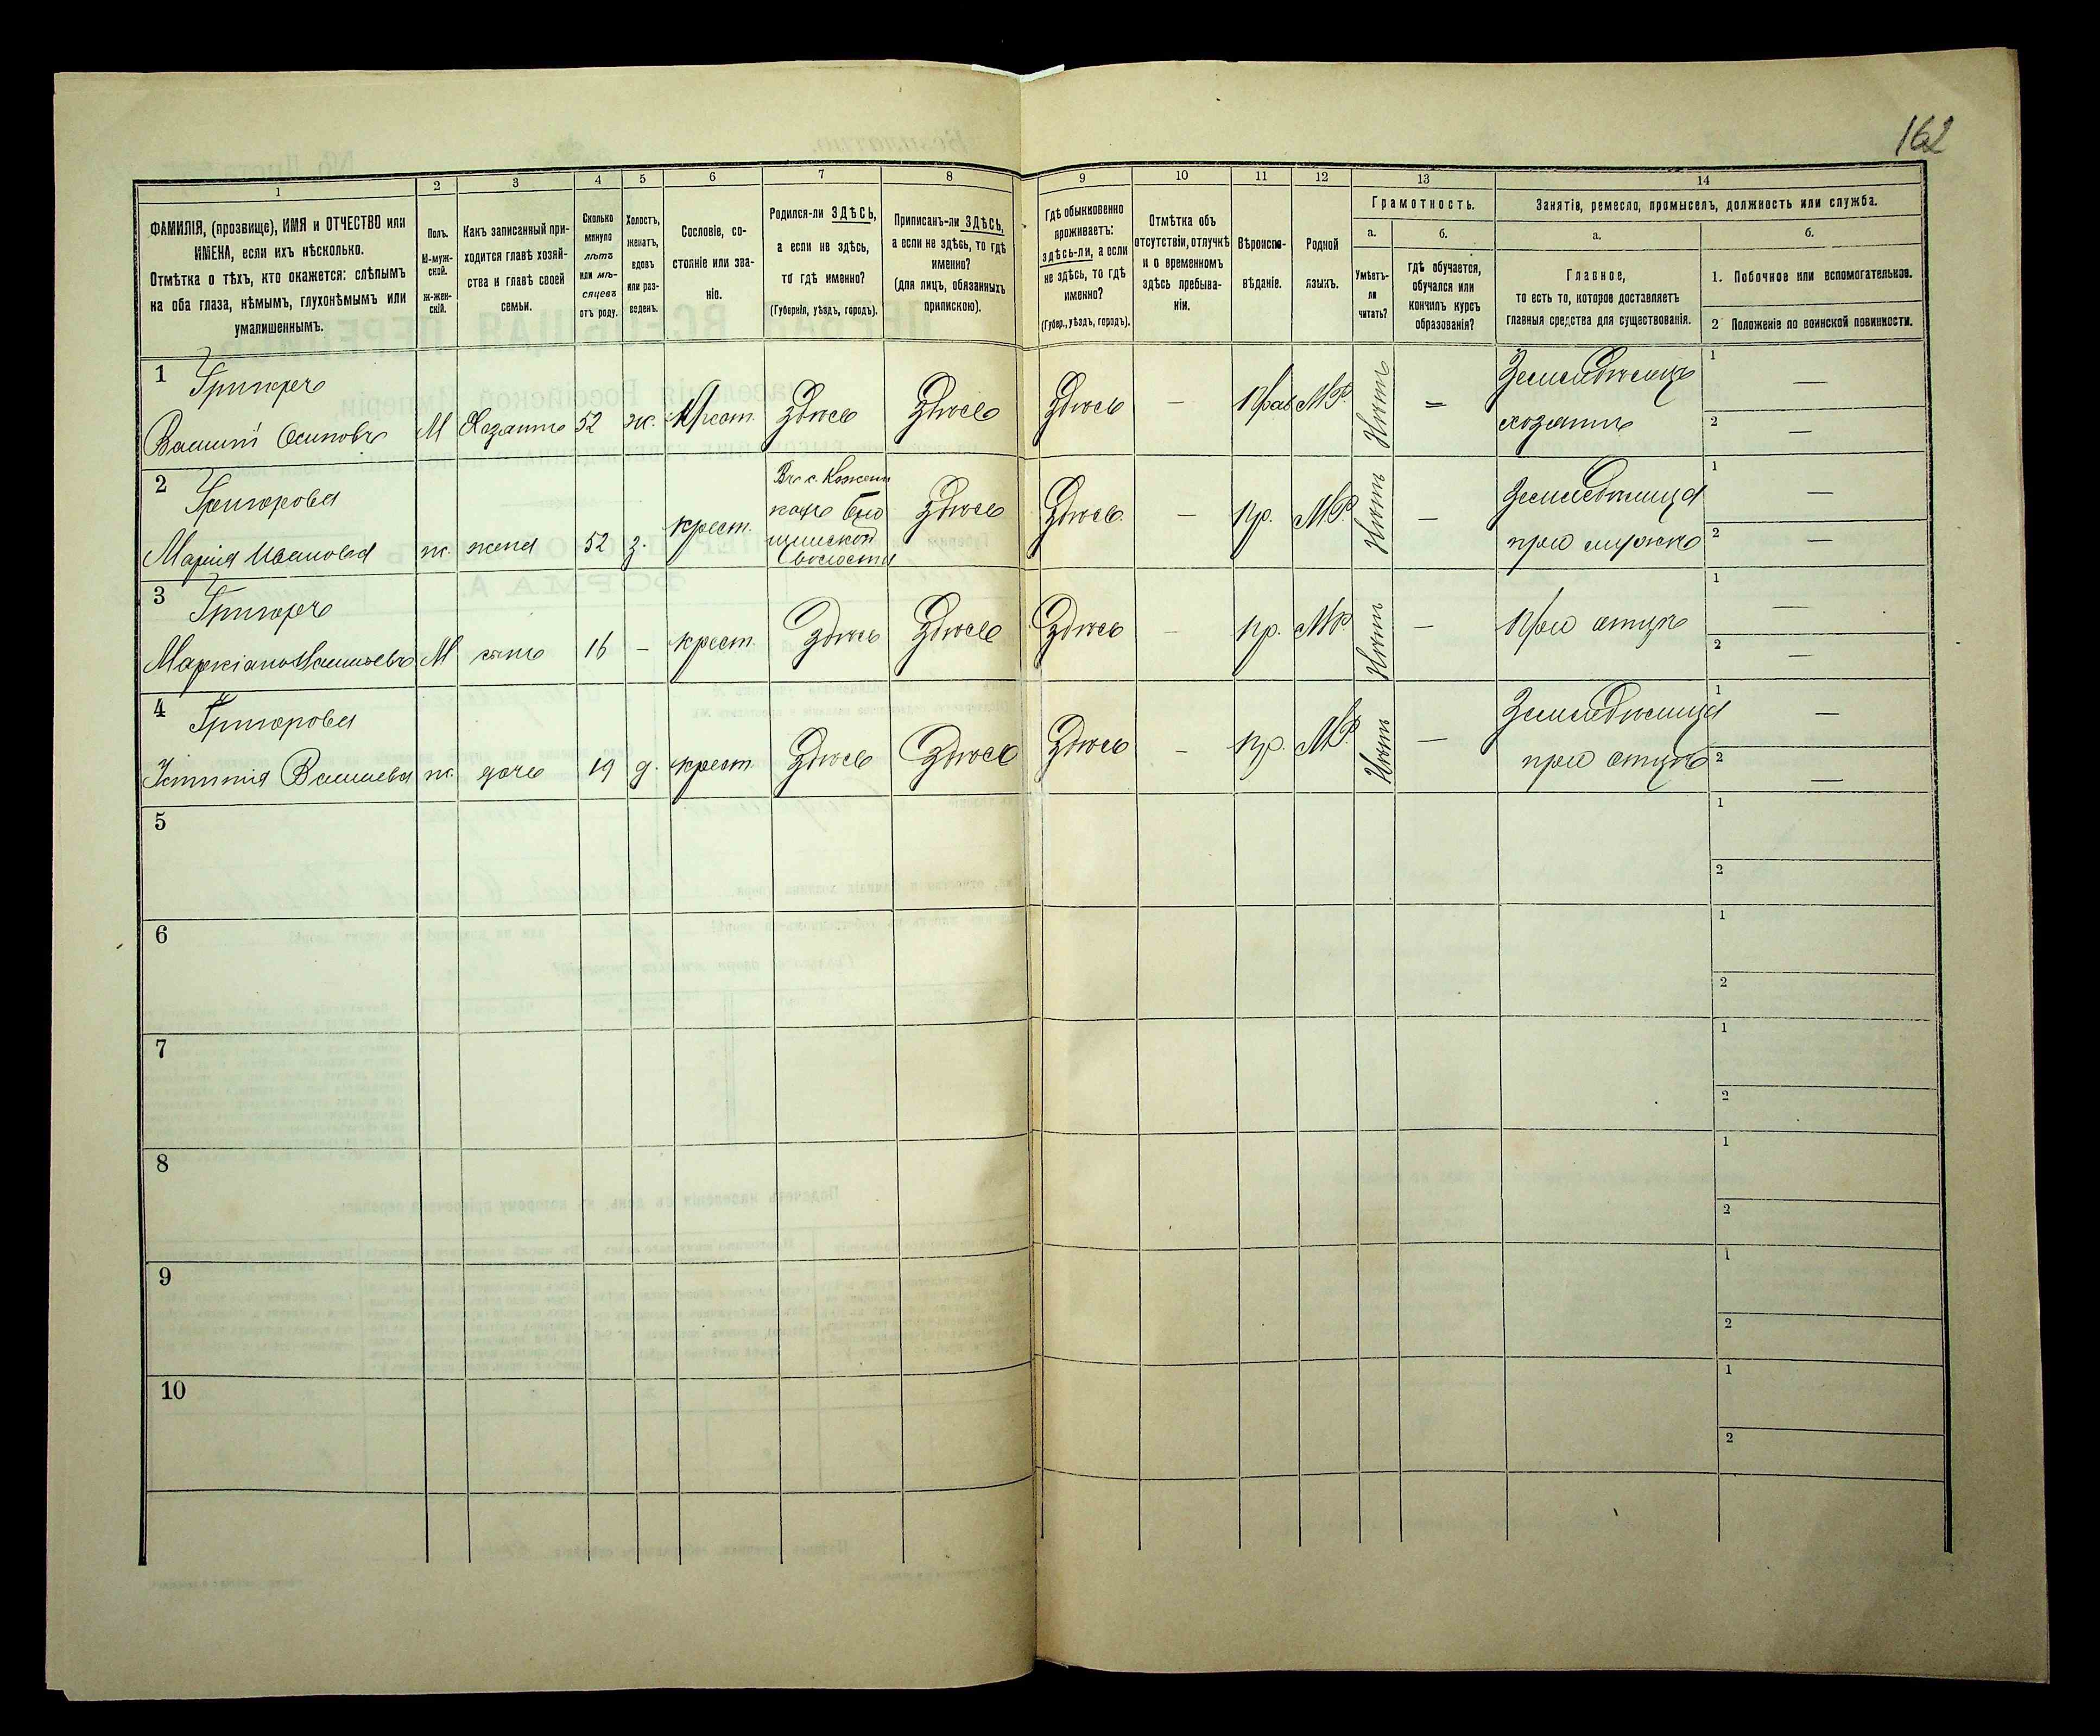 162
1
2
3
4
5
6
7
8
9
10
11
12
13
14
ФАМИЛІЯ, (прозвище), ИМЯ и ОТЧЕСТВО или
ИМЕНА, если ихъ нѣсколько.
Отмѣтка о тѣхъ, кто окажется: слѣпымъ
на оба глаза, нѣмымъ, глухонѣмымъ или
умалишеннымъ.
Полъ.
М-муж-
ской.
ж-жен-
скій.
Какъ записанный при-
ходится главѣ хозяй-
ства и главѣ своей
семьи.
Сколько
минуло
лѣтъ
или мѣ-
сяцевъ
отъ роду.
Холостъ,
женатъ,
вдовъ
или раз-
веденъ.
Сословіе, со-
стояніе или зва-
ніе.
Родился-ли ЗДѢСЬ,
а если не здѣсь,
то гдѣ именно?
(Губернія, уѣздъ, городъ).
Приписанъ-ли ЗДѢСЬ,
а если не здѣсь, то гдѣ
именно?
(для лицъ, обязанныхъ
припискою).
Гдѣ обыкновенно
проживаетъ:
здѣсь-ли, а если
не здѣсь, то гдѣ
именно?
(Губер., уѣздъ, городъ).
Отмѣтка объ
отсутствіи, отлучкѣ
и о временномъ
здѣсь пребыва-
ніи.
Вѣроиспо-
вѣданіе.
Родной
языкъ.
Грамотность.
а.
Умѣетъ-
ли
читать?
б.
гдѣ обучается,
обучался или
кончилъ курсъ
образованія?
Занятія, ремесло, промыселъ, должность или служба.
а.
Главное,
то есть то, которое доставляетъ
главныя средства для существованія.
б.
1. Побочное или вспомогательное.
2 Положеніе по воинской повинности.
1 Григоръ
Василій Осиповъ М Хозяинъ 52 ж. Крест. Здѣсь Здѣсь Здѣсь — Прав М.Р. Нѣтъ = Земледѣлецъ
хозяинъ
1 —
2 —
2 Григорова
Марія Иванова ж. жена 52 з. крест.
Въ с.
волости
Здѣсь Здѣсь — пр. М.Р. Нѣтъ — Земледѣлица
при мужѣ
1 —
2 —
3 Григоръ
Маркіанъ Васильевъ М сынъ 16 — крест. Здѣсь Здѣсь Здѣсь — пр. М.Р. Нѣтъ — При отцѣ
1 —
2 —
4 Григорова
Васильева ж. дочь 19 д. крест. Здѣсь Здѣсь Здѣсь — пр. М.Р. Нѣтъ — Земледѣлица
при отцѣ
1 —
2 —
5
1
2
6
1
2
7
1
2
8
1
2
9
1
2
10
1
2